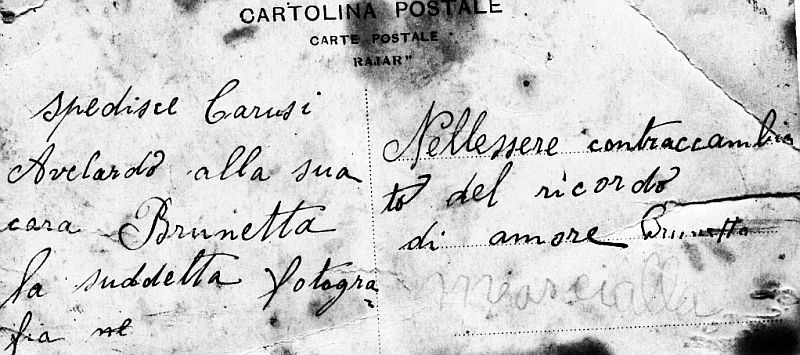 CARTOLINA POSTALE
CARTE POSTALE
RAJAR"
spedisce Carusi
Avelardo alla sua
cara Brunetta
la suddetta fotogra
fia ne
Nellessere contraccambia
to del ricordo
di amore Brunetta
Marcialla